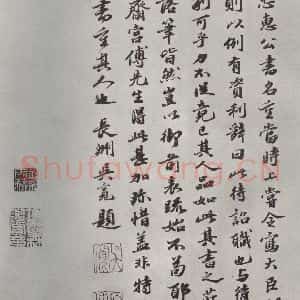 忠惠公書名重當時上嘗令寫大臣
則以例有資利辭曰此待詔職也與待
列可乎力不從竟已其人品如此其書之
落筆皆然豈以御表疏始不苟耶
齋宮傅先生得此甚加珍惜蓋非特
書重其人也 長洲吳寬題
Shufawang.cn